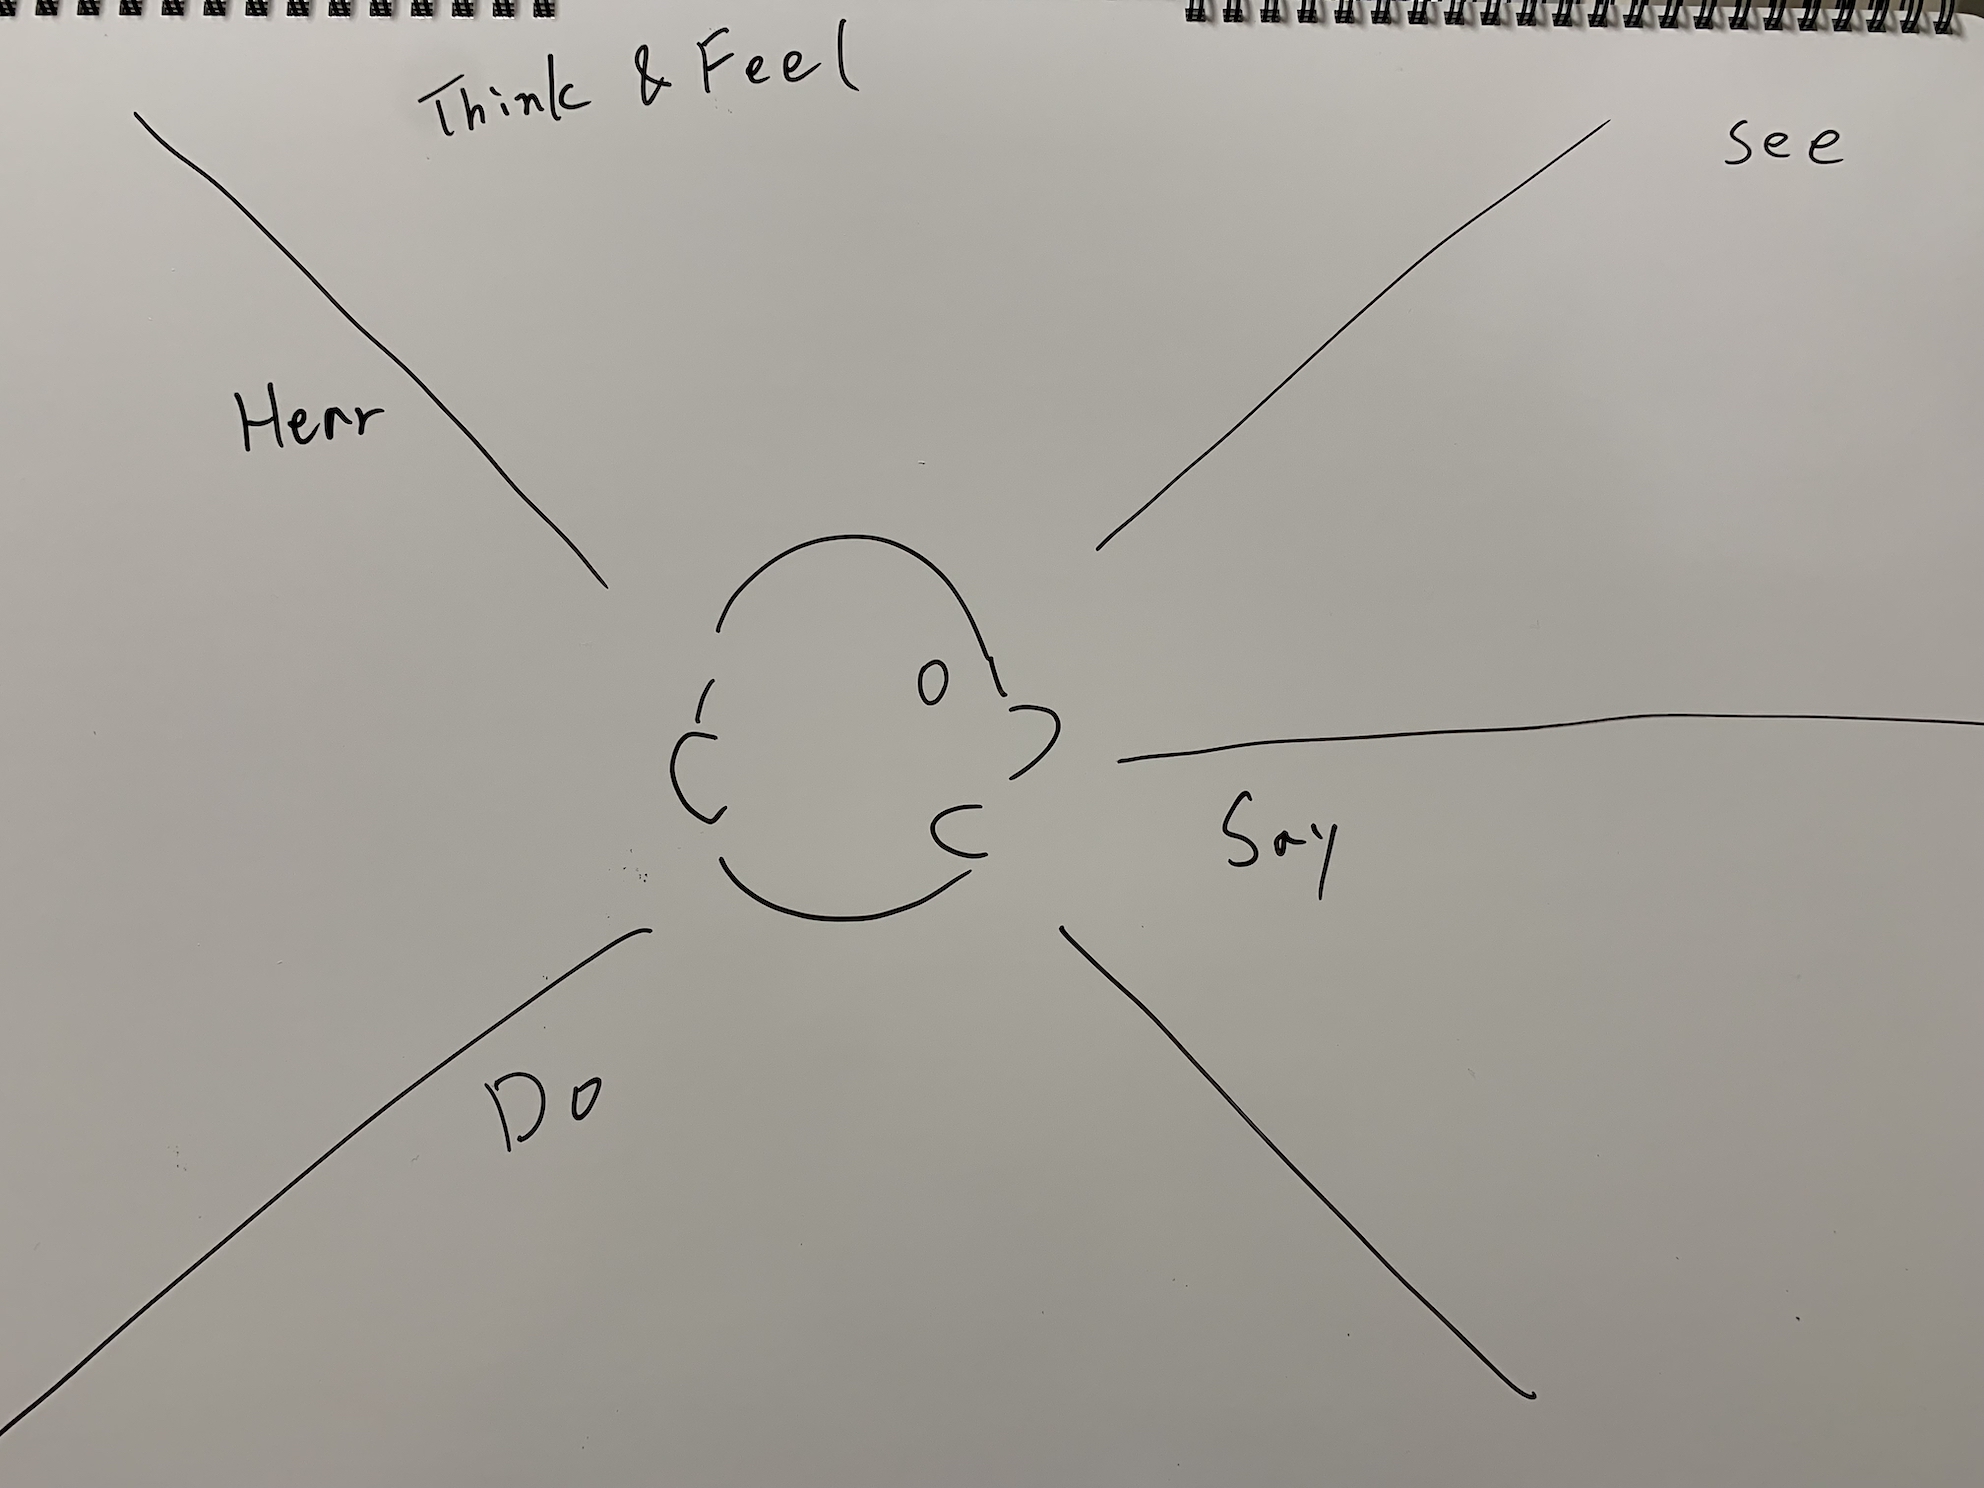 Think & Feel
See
Hear
Say
Do